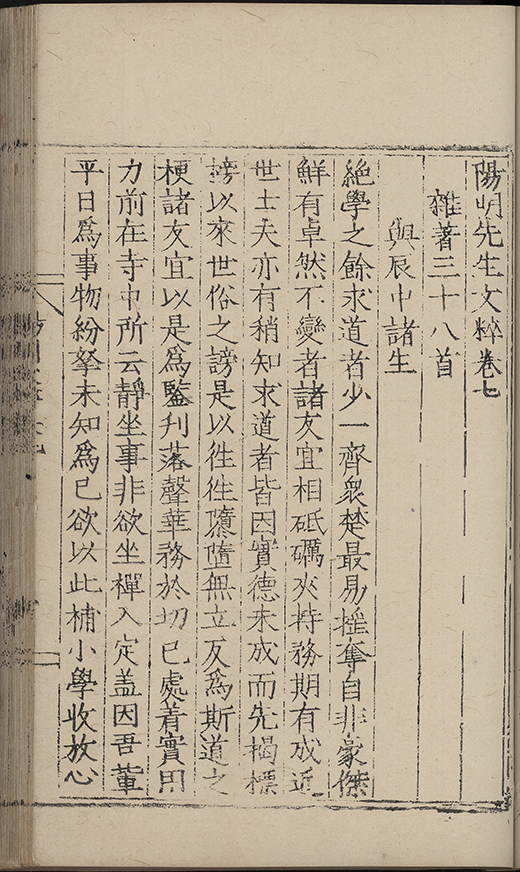 陽明先生文粹卷七
雜著三十八首
與辰中諸生
絕學之餘求道者少一齊衆楚最易搖奪自非豪傑
鮮有卓然不變者諸友宜相砥礪夾持務期有成近
世士夫亦有稍知求道者皆因實德未成而先揭標
榜以來世俗之謗是以徃徃隳墮無立反爲斯道之
梗諸友宜以是爲鑒刋落聲華務於切己處着實用
力前在寺中所云靜坐事非欲坐禪入定盖因吾輩
平日爲事物紛拏未知爲己欲以此補小學收放心